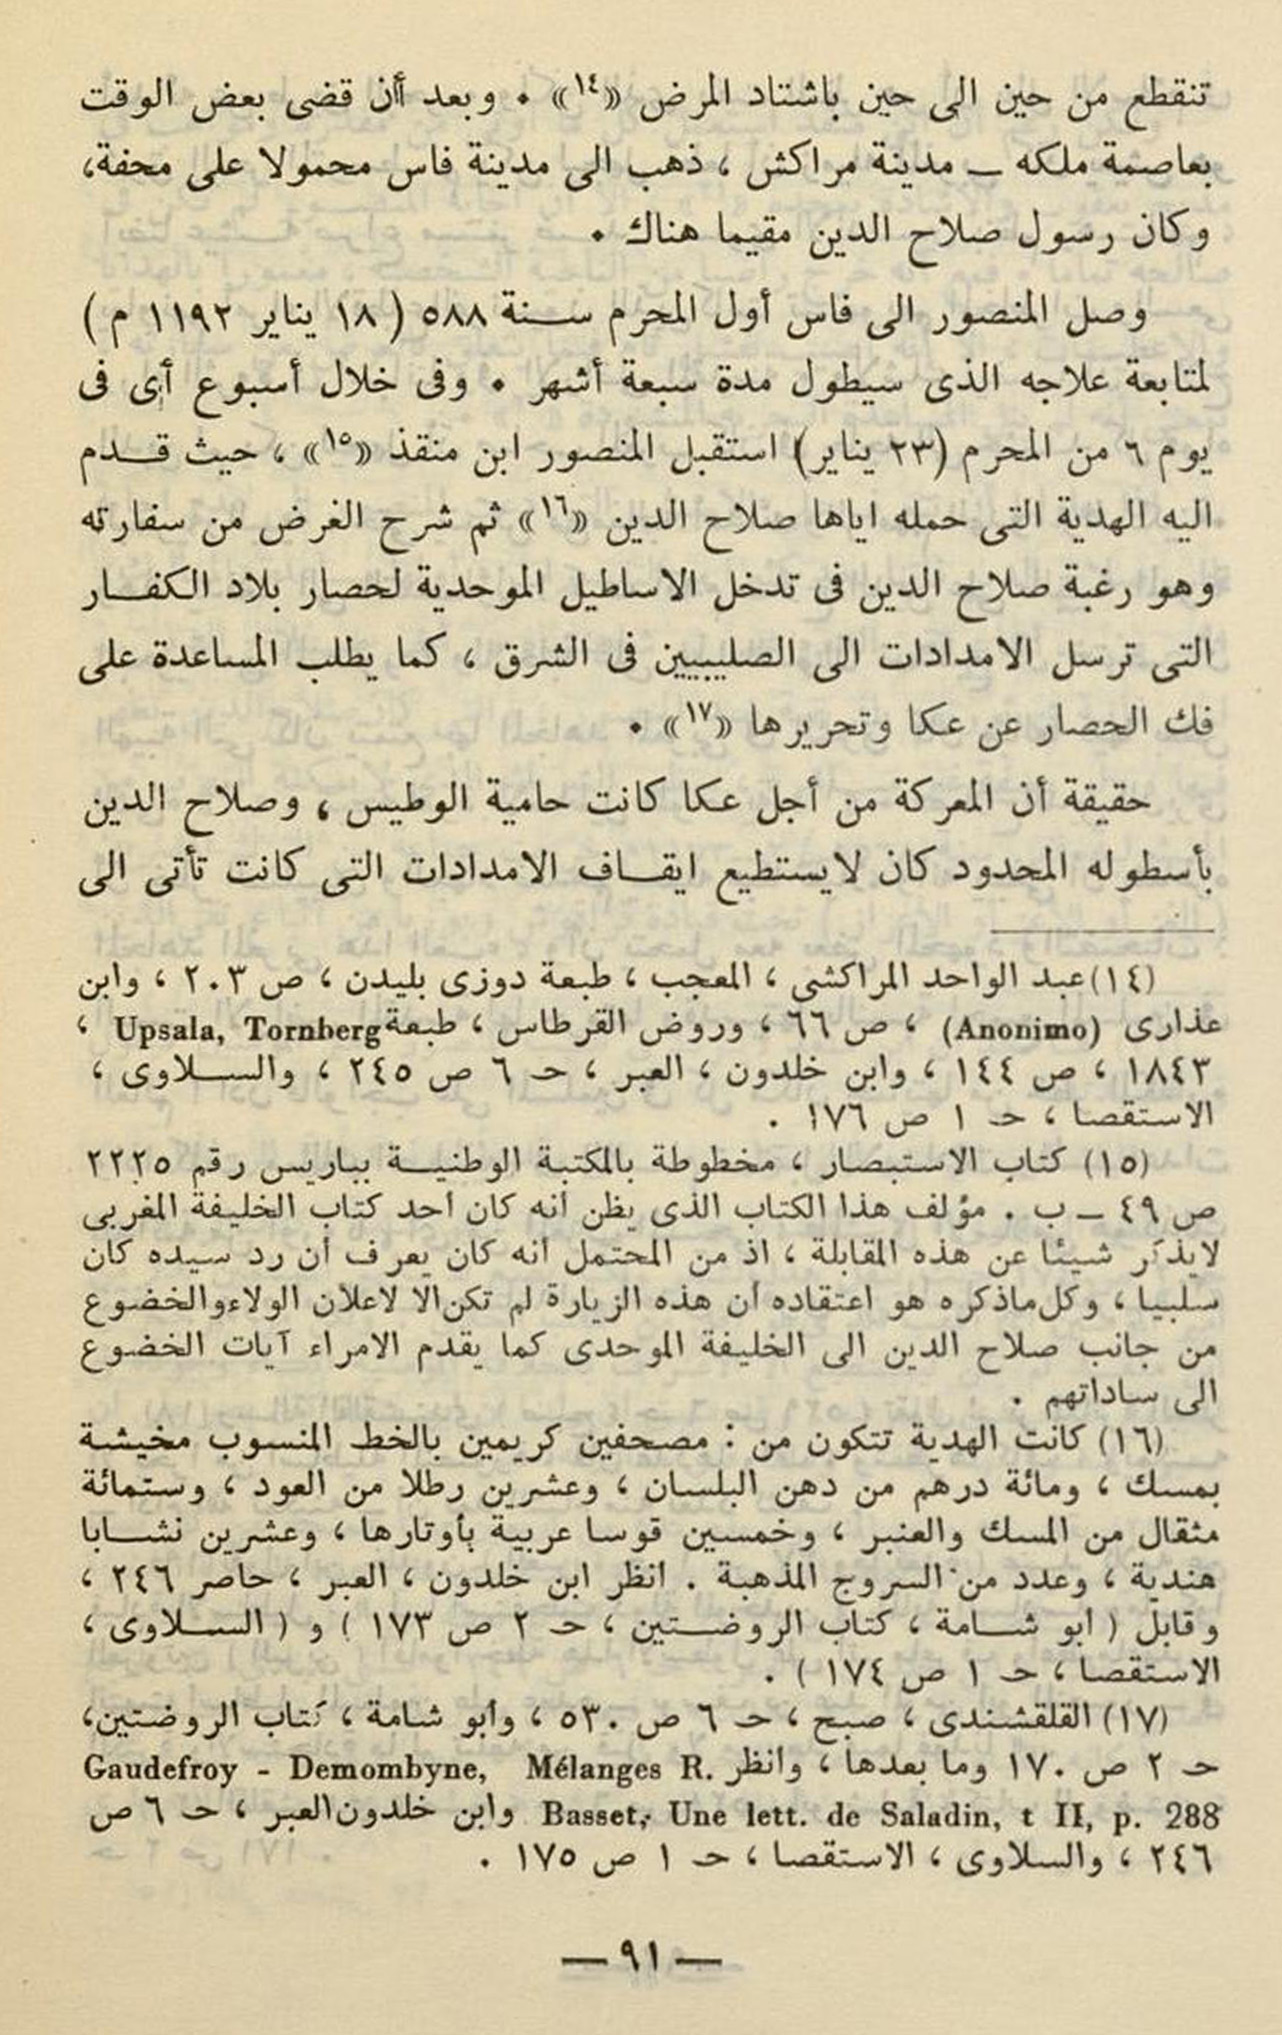 تنقطع من حين الى حين باشتاد المرض «١٤» . وبعد أأن قضى بعض الوقت
بعاصمة ملكه – مدينة مراكش ، ذهب الى مدينة فاس محمولا على محفة،
وكان رسول صلاح الدين مقيما هناك .
وصل المنصور الى فاس أول المحرم سنة ٥٨٨ ( ١٨ يناير ١١٩٢ م )
لمتابعة علاجه الذى سيطول مدة سبعة أشهر . وفى خلال أسبوع أى فى
يوم ٦ من المحرم (٢٣ يناير) استقبل المنصور ابن منقذ «١٥» ، حيث قدم
اليه الهدية التى حمله اياها صلاح الدين «١٦» ثم شرح الغرض من سفارته
وهو رغبة صلاح الدين فى تدخل الاساطيل الموحدية لحصار بلاد الكفار
التى ترسل الامدادات الى الصليبيين فى الشرق ، كما يطلب المساعدة على
فك الحصار عن عكا وتحريرها «١٧» .
حقيقة أن المعركة من أجل عكا كانت حامية الوطيس ، وصلاح الدين
بأسطوله المحدود كان لايستطيع ايقاف الامدادات التى كانت تأتى الى
(١٤) عبد الواحد المراكشى ، المعجب ، طبعة دوزى بليدن ، ص ٢٠٣ ، وابن
عذارى (Anonimo) ، ص ٦٦ ، وروض القرطاس ، طبعة Upsala, Tornberg ،
١٨٤٣ ، ص ١٤٤ ، وابن خلدون ، العبر ، حـ ٦ ص ٢٤٥ ، والسلاوى ،
الاستقصا ، حـ ١ ص ١٧٦ .
(١٥) كتاب الاستبصار ، مخطوطة بالمكتبة الوطنية بباريس رقم ٢٢٢٥
ص ٤٩ – ب . مؤلف هذا الكتاب الذى يظن أنه كان أحد كتاب الخليفة المغربى
لايذكر شيئا عن هذه المقابلة ، اذ من المحتمل أنه كان يعرف أن رد سيده كان
سلبيا ، وكل ماذكره هو اعتقاده أن هذه الزيارة لم تكن الا لاعلان الولاء والخضوع
من جانب صلاح الدين الى الخليفة الموحدى كما يقدم الامراء آيات الخضوع
الى ساداتهم .
(١٦) كانت الهدية تتكون من : مصحفين كريمين بالخط المنسوب مخيشة
بمسك ، ومائة درهم من دهن البلسان ، وعشرين رطلا من العود ، وستمائة
مثقال من المسك والعنبر ، وخمسين قوسا عربية بأوتارها ، وعشرين نشابا
هندية ، وعدد من السروج المذهبة . انظر ابن خلدون ، العبر ، حاصر ٢٤٦ ،
وقابل ( أبو شامة ، كتاب الروضتين ، حـ ٢ ص ١٧٣ ) و ( السلاوى ،
الاستقصا ، حـ ١ ص ١٧٤ ) .
(١٧) القلقشندى ، صبح ، حـ ٦ ص ٥٣٠ ، وأبو شامة ، كتاب الروضتين،
حـ ٢ ص ١٧٠ وما بعدها ، وانظر Gaudefroy - Demombyne, Mélanges R.
Basset, Une lett. de Saladin, t II, p. 288 وابن خلدون العبر ، حـ ٦ ص
٢٤٦ ، والسلاوى ، الاستقصا ، حـ ١ ص ١٧٥ .
— ٩١ —